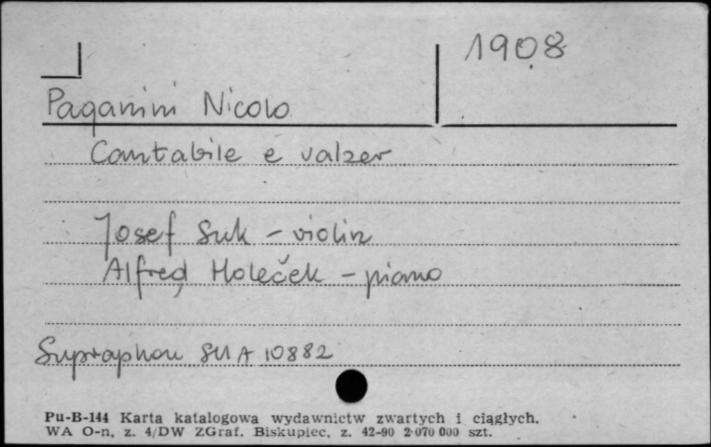 1908
Paganini Nicolo
Cantabile e valzer
Josef Suk - violin
Alfred Holeček - piano
Supraphon SUA 10882
Pu-B-144 Karta katalogowa wydawnictw zwartych i ciągłych.
WA O-n, z. 4/DW ZGraf. Biskupiec, z. 42-90 2 070 000 szt.